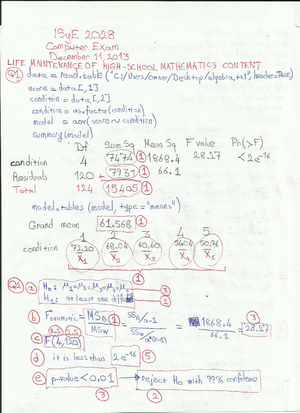 ISyE 2028
Computer Exam
December 11, 2013
LIFE MAINTENANCE OF HIGH-SCHOOL MATHEMATICS CONTENT
Q1 data = read.table("C:/Users/omar/Desktop/algebra.txt", header=TRUE)
score = data[,1]
condition = data[,2]
condition = as.factor(condition)
model = aov(score~condition)
summary(model)
Df Sum Sq Mean Sq F value Pr(>F)
condition 4 7474 1 1868.4 28.27 <2e-16
Residuals 120 7931 1 66.1
Total 124 15405 1
model.tables(model, type="means")
Grand mean 61.568 1
1 2 3 4 5
condition 72,20 68,04 60,60 56,04 50,96
x̄1 x̄2 x̄3 x̄4 x̄5
Q2 a H0: μ1=μ2=μ3=μ4=μ5 2
H1: at least one 2
b Fstatistic = MSB / MSW = SSB/a-1 / SSW/a*(n-1) = 1868.4 / 66.1 = 28.27 3
2.5 2.5
c F(4,120)
d it is less than 2e-16 5
e p-value < 0.01 → reject H0 with 99% confidence
3 2